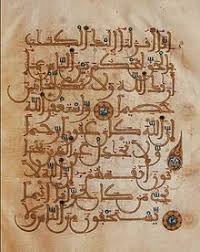 إنا أنزلنا إليك الكتاب
بالحق لتحكم بين الناس بما
أراك الله ولا تكن للخائنين
خصيما واستغفر الله
إن الله كان غفورا رحيما
ولا تجادل عن الذين يختا
نون أنفسهم إن الله لا يحب
من كان خوانا أثيما
يستخفون من الناس